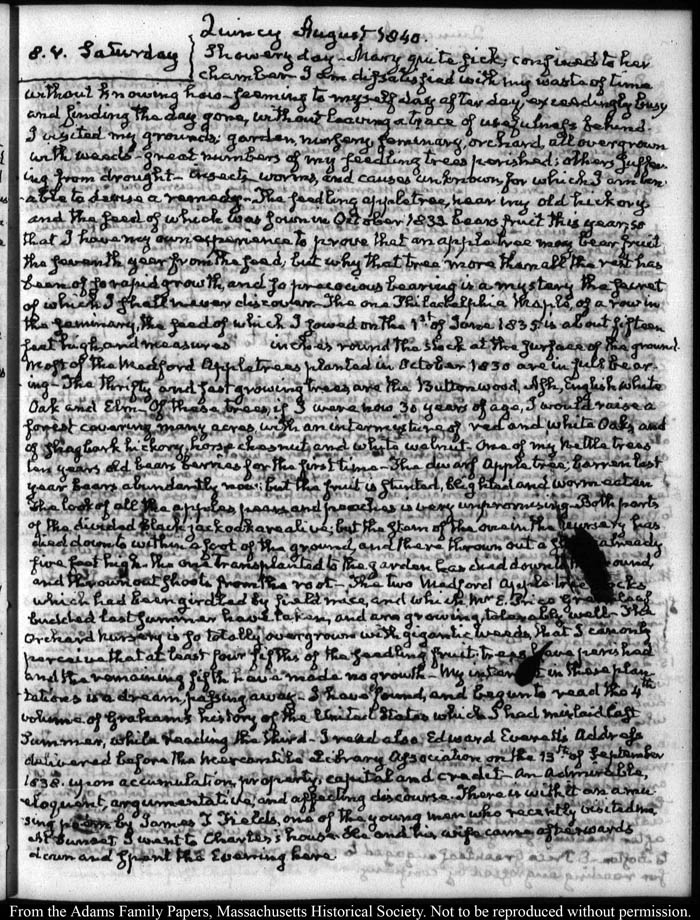 Quincy August 1840.
8. V. Saturday
Showery day – Mary quite sick, confined to her
chamber I am dissatisfied with my waste of time
without knowing how – seeming to myself day after day, exceedingly busy
and finding the day gone, without leaving a trace of usefulness behind.
I visited my grounds; garden, nursery, seminary, orchard, all overgrown
with weeds – great numbers of my seedling trees perished; others suffer-
ing from drought – insects worms, and causes unknown, for which I am un-
able to devise a remedy – The seedling apple tree, near my old hickory
and the seed of which was sown in October 1833 bears fruit this year, so
that I have my own experience to prove that an apple tree may bear fruit
the seventh year from the seed; but why that tree more than all the rest has
been of so rapid growth, and so precocious bearing is a mystery the secret
of which I shall never discover – The one Philadelphia Maple, of a row in
the seminary, the seed of which I sowed on the 1st of June 1835 is about fifteen
feet high, and measures inches round the stock at the surface of the ground.
Most of the Medford Apple trees planted in October 1830 are in full bear-
ing – The thrifty and fast growing trees are the Buttonwood, Ash, English white
Oak and Elm – Of these trees, if I were now 30 years of age, I would raise a
forest covering many acres, with an intermixture of red and white Oaks, and
of Shagbark hickory, horse chesnut, and white walnut – One of my Nettle trees
ten years old bears berries for the first time – The dwarf Apple tree, barren last
year bears abundantly now; but the fruit is stunted, blighted and worm eaten
The look of all the apples pears and peaches is very unpromising – Both parts
of the divided Black jack oak are alive; but the stem of the one in the nursery has
died down to within a foot of the ground, and there thrown out a already
five feet high – the one transplanted to the garden has died down ground,
and thrown out shoots from the root – The two Medford Apple tree stocks
which had been girdled by field mice, and which Mr E. Price Greenleaf
budded last summer have taken, and are growing, tolerably well – The
Orchard nursery is so totally overgrown with gigantic weeds, that I can only
perceive that at least four fifths of the seedling fruit trees have perished
and the remaining fifth have made no growth – My interest in these plan-
tations is a dream, passing away – I have found, and begun to read the 4th
volume of Grahams history of the United States which I had mislaid last
Summer, while reading the third – I read also Edward Everett's Address
delivered before the Mercantile Library Association on the 13th of September
1838. upon accumulation, property, capital and credit – An Admirable,
eloquent, argumentative, and affecting discourse. There is with it an amu-
sing poem by James T Fields, one of the young men who recently visited me
At Sunset I went to Charles's house. He and his wife came afterwards
down and spent the Evening here
From the Adams Family Papers, Massachusetts Historical Society. Not to be reproduced without permission.